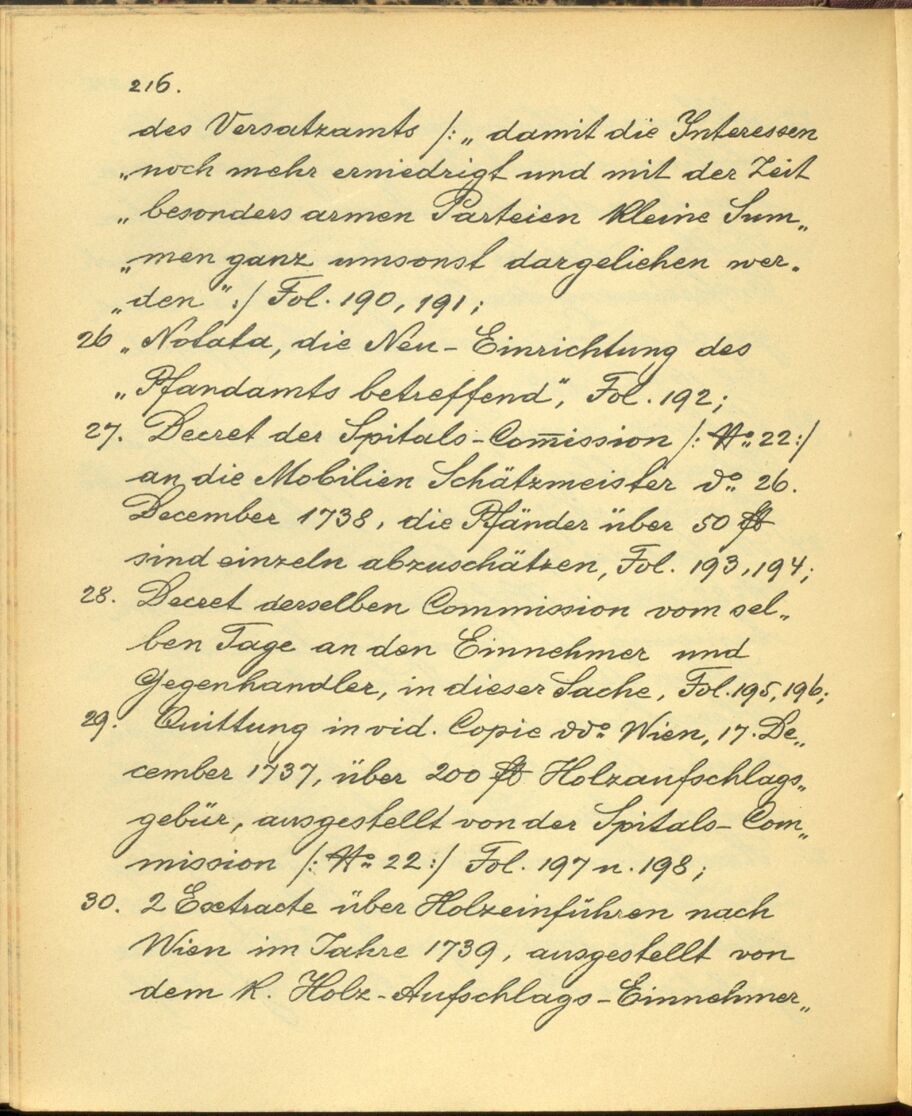 216.
des Versatzamts /: „damit die Interessen
„noch mehr erniedrigt und mit der Zeit
„besonders armen Parteien kleine Sum„
„men ganz umsonst dargeliehen wer„
„den“ :/ Fol. 190, 191;
26 „Notata, die Neu-Einrichtung des
„Pfandamts betreffend“, Fol. 192;
27. Decret der Spitals-Com̄ission /: No 22 :/
an die Mobilien Schätzmeister do 26.
December 1738, die Pfänder über 50 fl
sind einzeln abzuschätzen, Fol. 193, 194;
28. Decret derselben Commission vom sel„
ben Tage an den Einnehmer und
Gegenhandler, in dieser Sache, Fol. 195, 196;
29. Quittung in vid. Copie ddo Wien, 17. De„
cember 1737, über 200 fl Holzaufschlags„
gebür, ausgestellt von der Spitals-Com„
mission /: No 22 :/ Fol. 197 u. 198;
30. 2 Extracte über Holzeinführen nach
Wien im Jahre 1739, ausgestellt von
dem K. Holz-Aufschlags-Einnehmer„